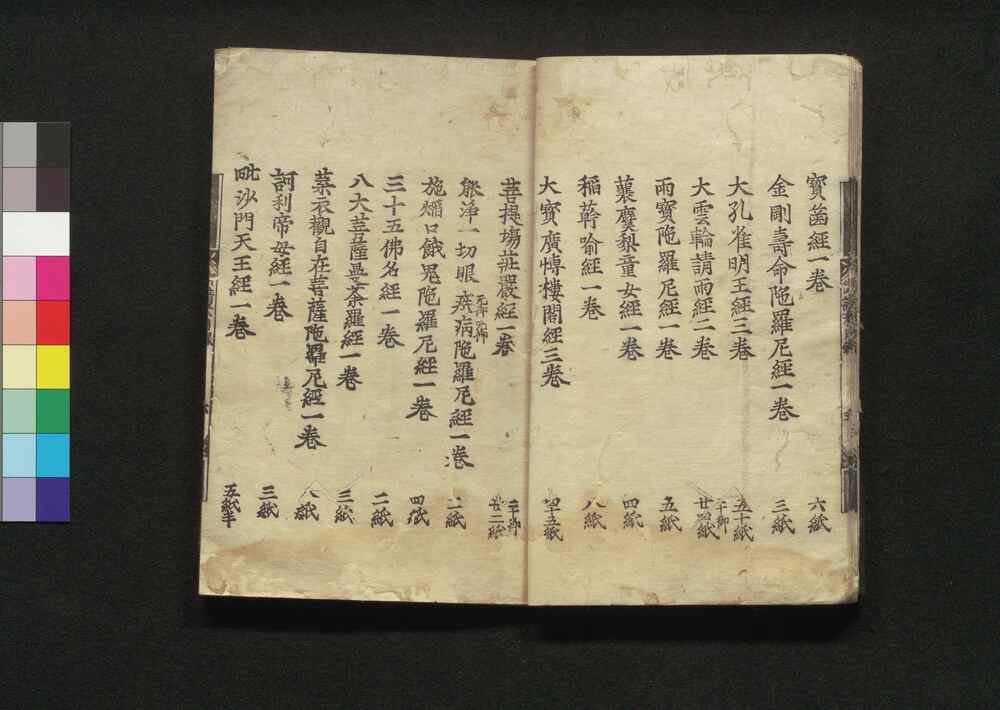 寳篋經一卷 六紙
金剛壽命陁羅尼經一卷 三紙
大孔雀明王經三卷 五十紙
大雲輪請雨經二卷 廿四紙
雨寳陁羅尼經一卷 五紙
蘘麌梨童女經一卷 四紙
稻𦼮喻經一卷 八紙
大寳廣愽樓閣經三卷 四十五紙
菩提塲莊嚴經一卷 廿二紙
能淨一切眼疾病陁羅尼經一卷 二紙
施熖口餓鬼陁羅尼經一卷 四紙
三十五佛名經一卷 二紙
八大菩薩曼荼羅經一卷 三紙
葉衣觀自在菩薩陁羅尼經一卷 八紙
訶利帝母經一卷 三紙
毗沙門天王經一卷 五紙半